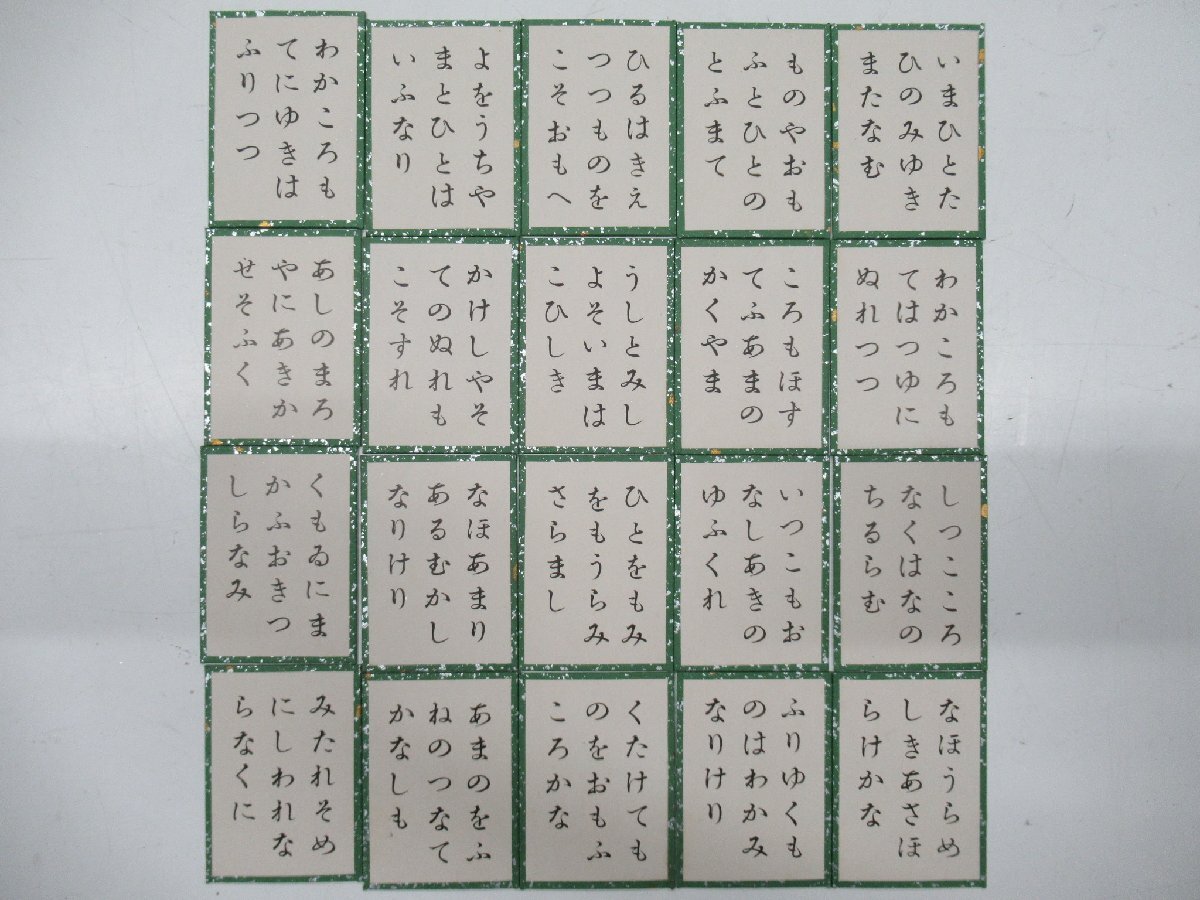 いまひとた
ひのみゆき
またなむ
ものやおも
ふとひとの
とふまて
ひるはきえ
つつものを
こそおもへ
よをうちや
まとひとは
いふなり
わかころも
てにゆきは
ふりつつ
わかころも
てはつゆに
ぬれつつ
ころもほす
てふあまの
かくやま
うしとみし
よそいまは
こひしき
かけしやそ
てのぬれも
こそすれ
あしのまろ
やにあきか
せそふく
しつこころ
なくはなの
ちるらむ
いつこもお
なしあきの
ゆふくれ
ひとをもみ
をもうらみ
さらまし
なほあまり
あるむかし
なりけり
くもゐにま
かふおきつ
しらなみ
なほうらめ
しきあさほ
らけかな
ふりゆくも
のはわかみ
なりけり
くたけても
のをおもふ
ころかな
あまのをふ
ねのつなて
かなしも
みたれそめ
にしわれな
らなくに